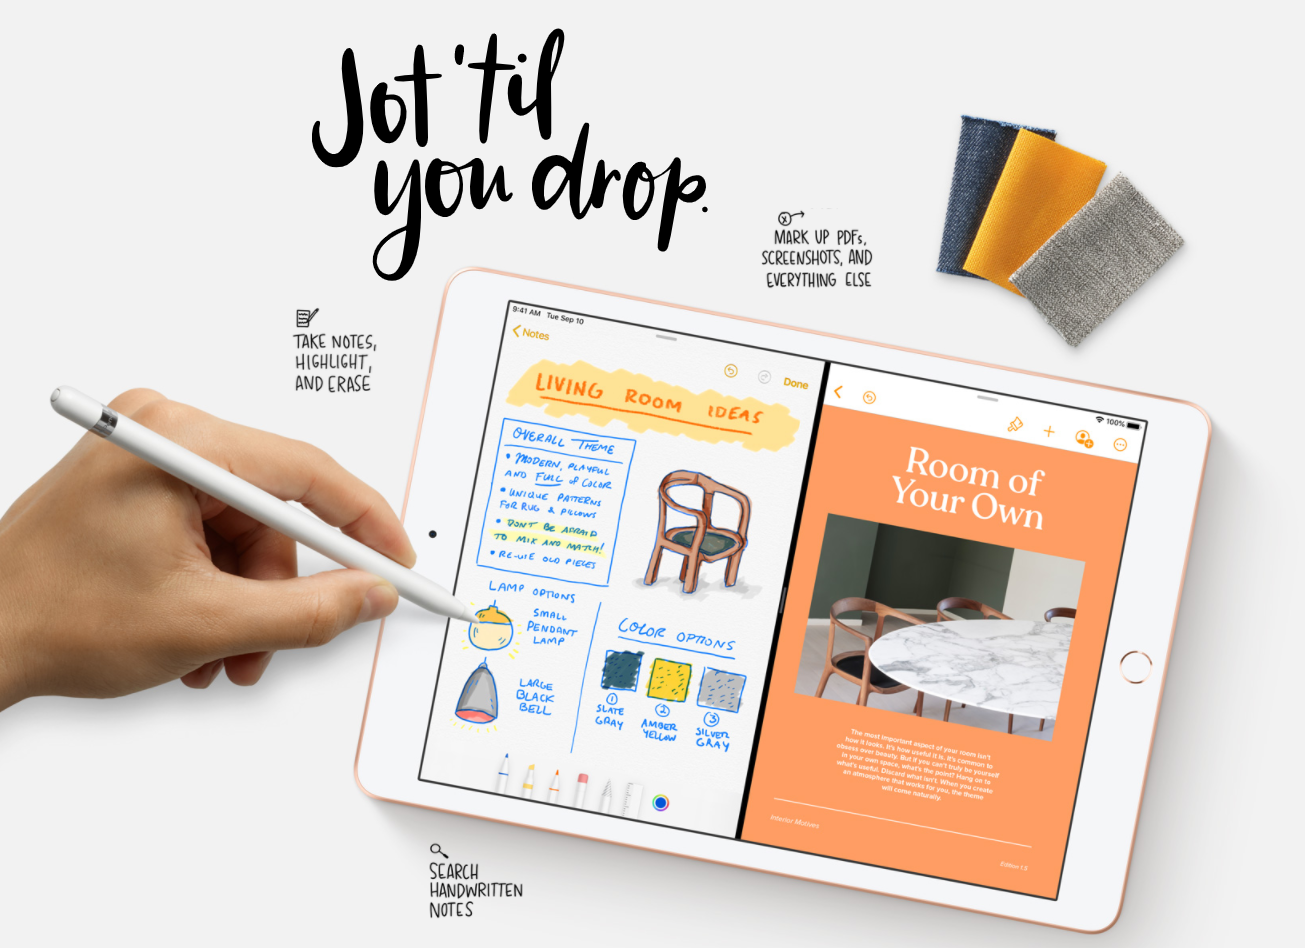 Jot 'til
you drop.
MARK UP PDFs,
SCREENSHOTS, AND
EVERYTHING ELSE
TAKE NOTES,
HIGHLIGHT,
AND ERASE
9:41 AM Tue Sep 10
Notes
Done
LIVING ROOM IDEAS
OVERALL THEME
• MODERN, PLAYFUL
AND FULL of COLOR
• UNIQUE PATTERNS
FOR RUG & PILLOWS
• DON'T BE AFRAID
TO MIX AND MATCH!
• RE-USE OLD PIECES
LAMP OPTIONS
SMALL
PENDANT
LAMP
LARGE
BLACK
BELL
COLOR OPTIONS
1
SLATE
GRAY
2
AMBER
YELLOW
3
SILVER
GRAY
100%
Room of
Your Own
The most important aspect of your room isn't
how it looks. It's how useful it is. It's common to
obsess over beauty. But if you can't truly be yourself
in your own space, what's the point? Hang on to
what's useful. Discard what isn't. When you create
an atmosphere that works for you, the theme
will come naturally.
Interior Motives
Edition 1.5
SEARCH
HANDWRITTEN
NOTES